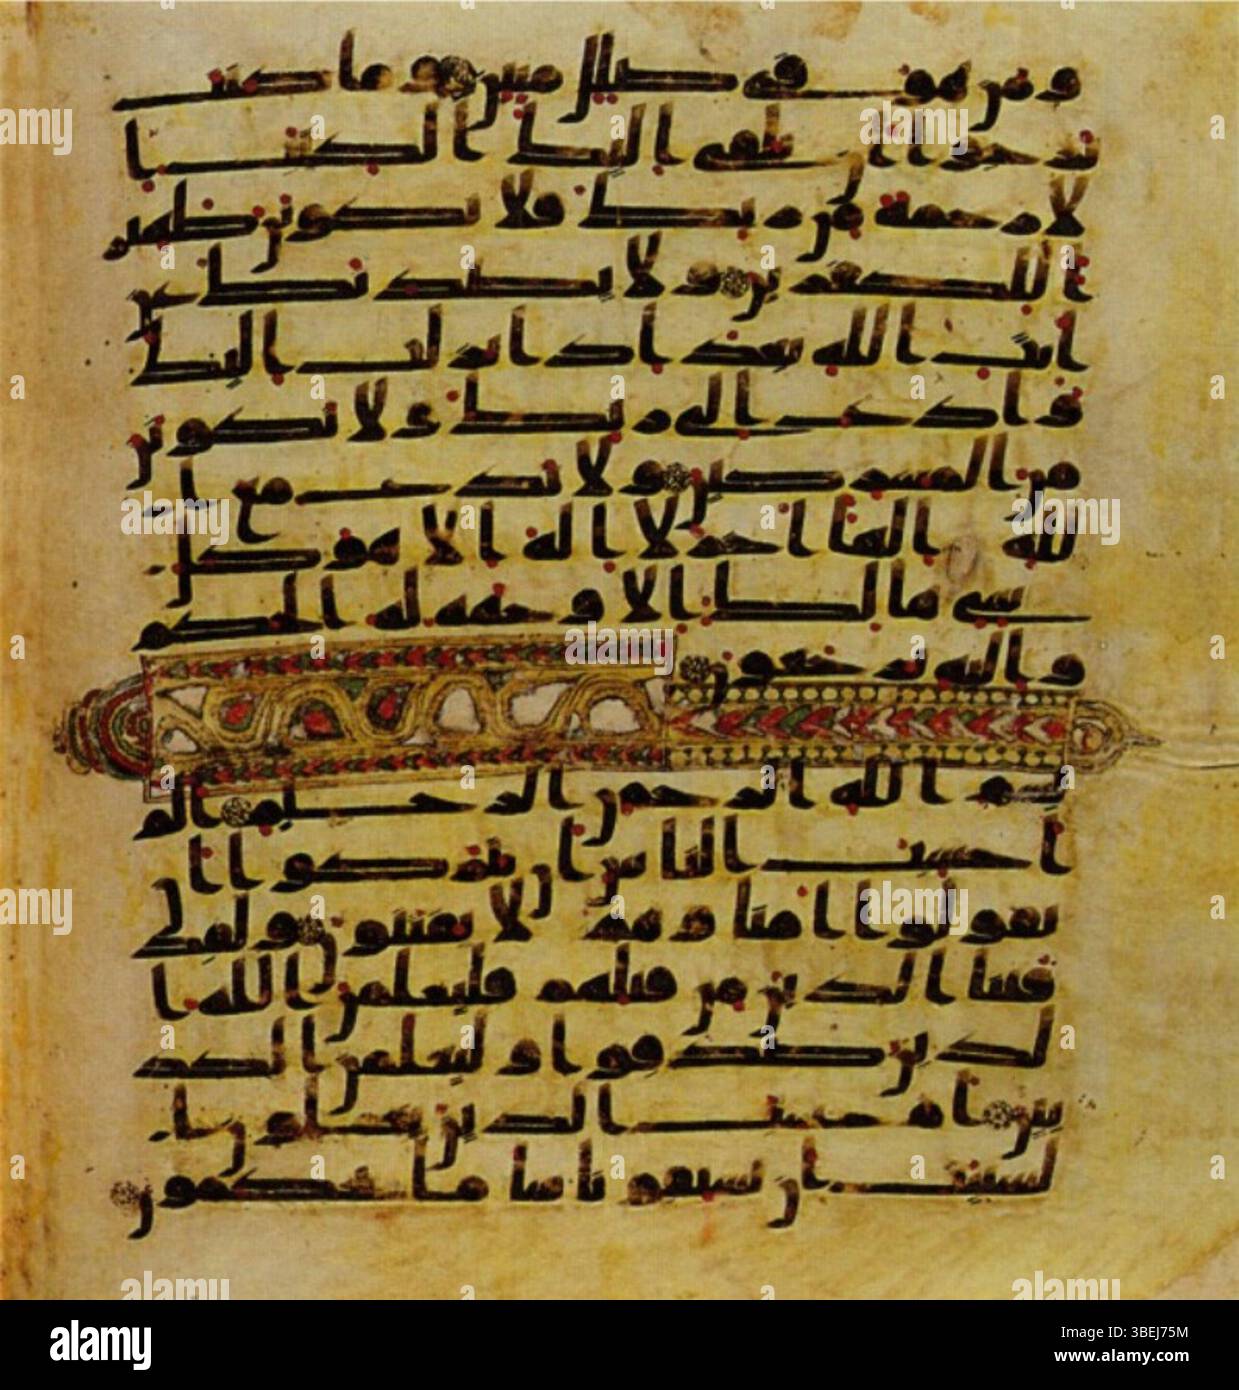 ومن هو في ضلل مبين وما كنت
ترجوا ان يلقى اليك الكتب ا
لا رحمة من ربك فلا تكونن ظهير
ا للكفرين ولا يصدنك عن
ايت الله بعد اذ انزلت اليك
وادع الى ربك ولا تكونن
من المشركين ولا تدع مع ا
لله الها اخر لا اله الا هو كل
شي هالك الا وجهه له الحكم
واليه ترجعون
بسم الله الرحمن الرحيم الم
احسب الناس ان يتركوا ان
يقولوا امنا وهم لا يفتنون ولقد
فتنا الذين من قبلهم فليعلمن الله ا
لذين صدقوا وليعلمن الكذ
بين ام حسب الذين يعملون ا
لسيت ان يسبقونا سا ما يحكمون
alamy
Image ID: 3BEJ75M
www.alamy.com